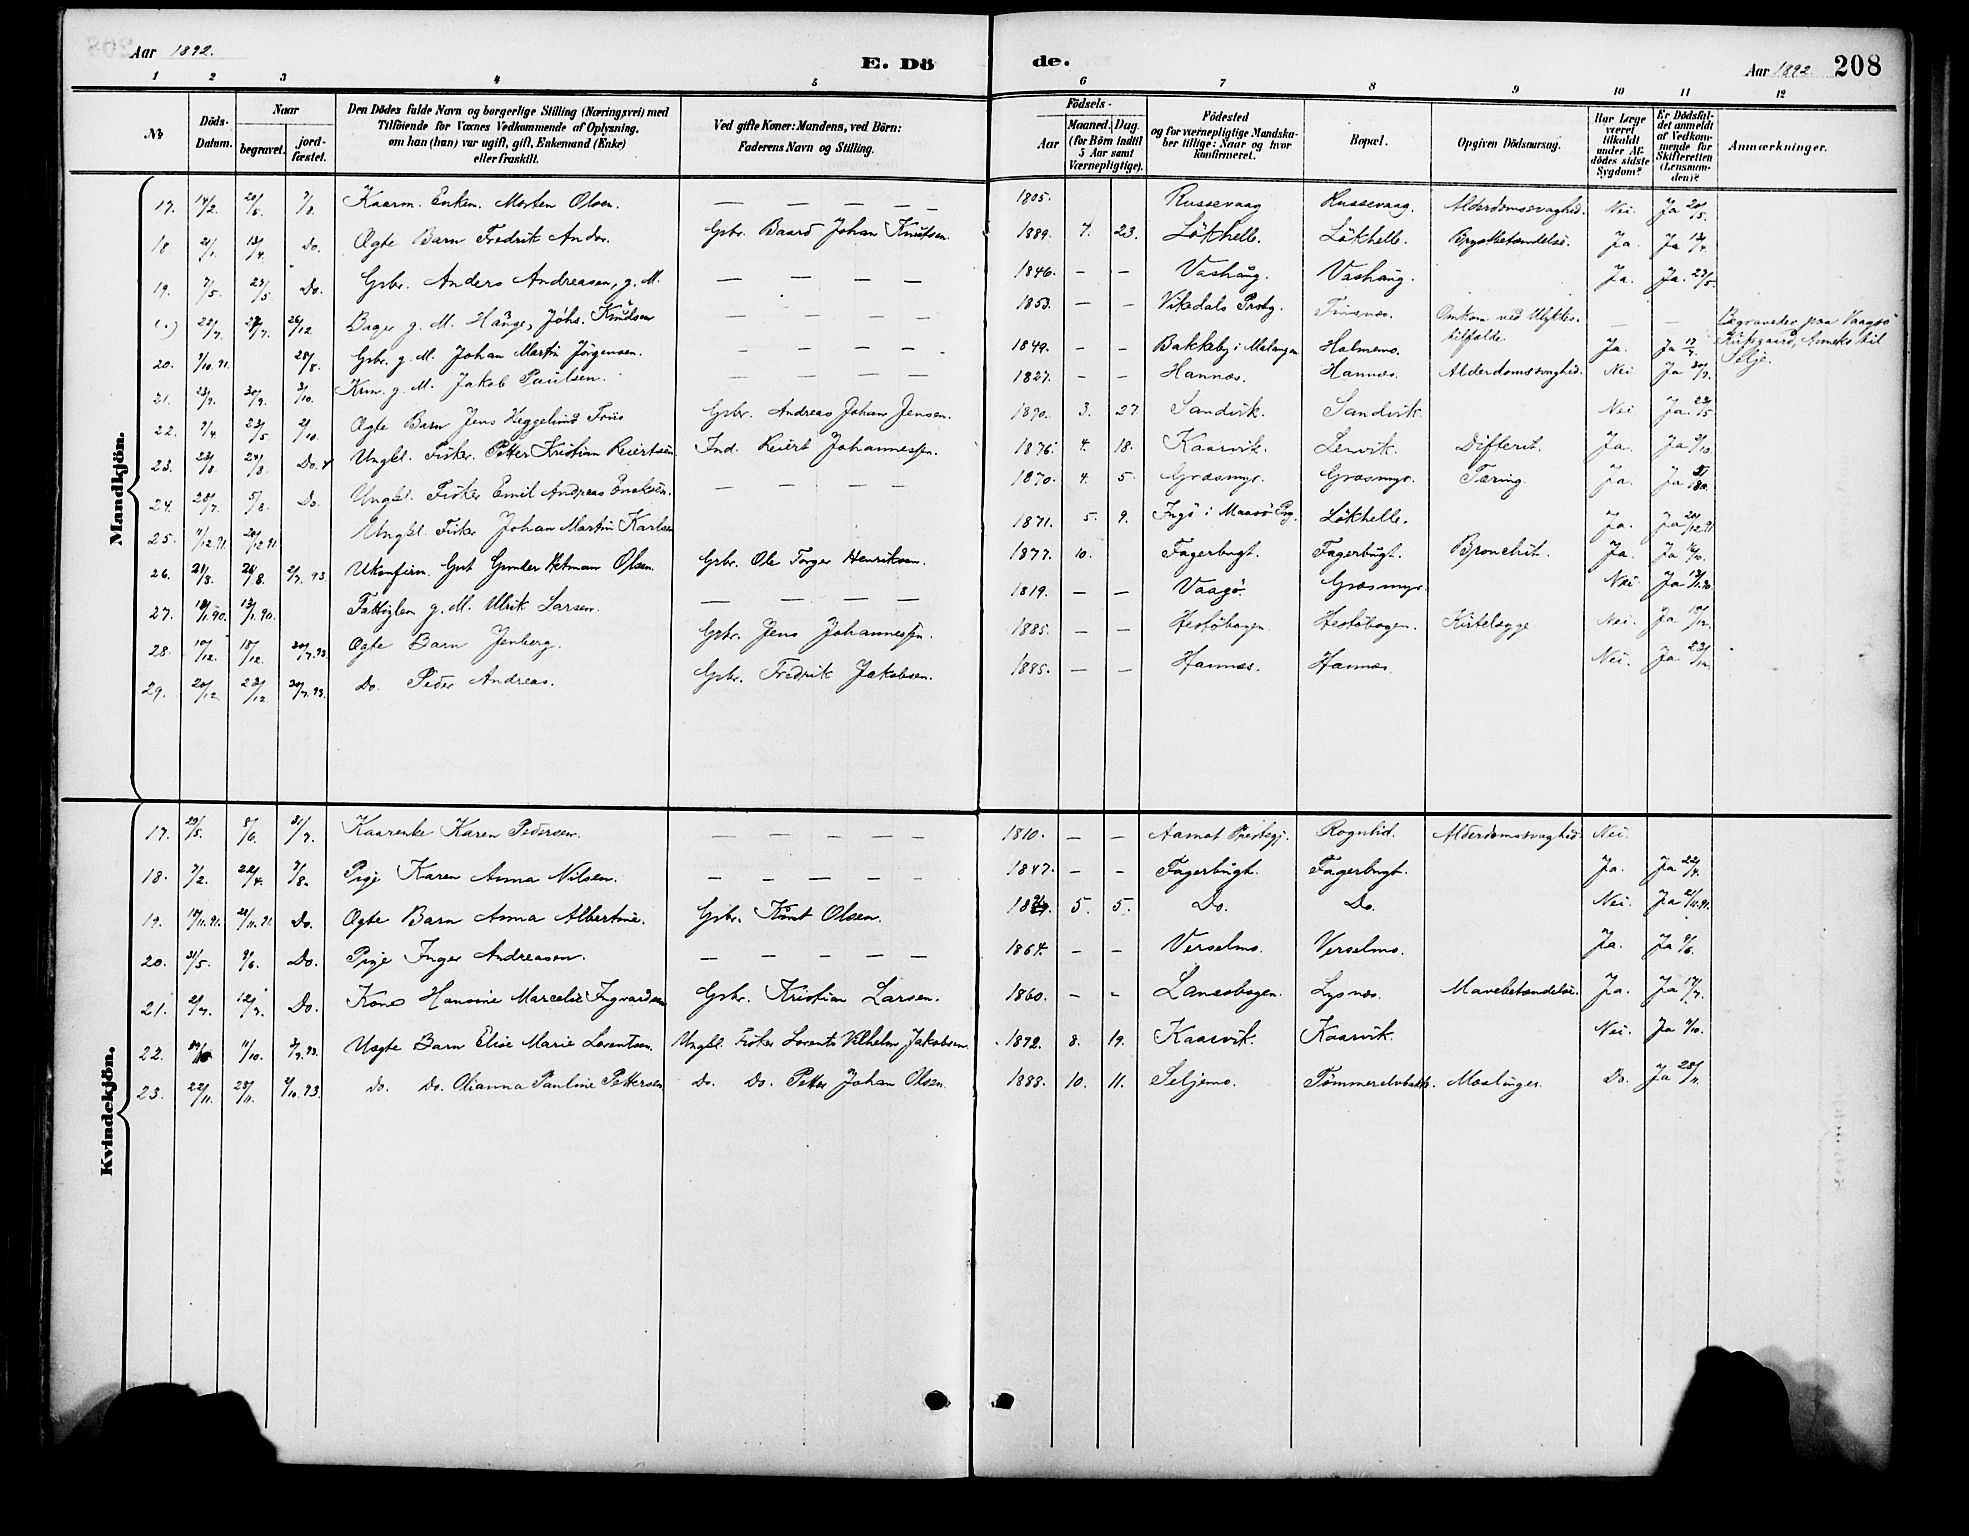 Aar 1892. E. Dö de. Aar 1892 208
1 2 3 4 5 6 7 8 9 10 11 12
№ Döds-Datum. Naar begravet. jordfæstet. Den Dödes fulde Navn og borgerlige Stilling (Næringsvei) med Tilföiende for Voxnes Vedkommende af Oplysning, om han (hun) var ugift, gift, Enkemand (Enke) eller fraskilt. Ved gifte Koner: Mandens, ved Börn: Faderens Navn og Stilling. Födsels- Aar Maaned. Dag. (for Börn indtil 5 Aar samt Værnepligtige). Födested og for værnepligtige Mandskaber tillige: Naar og hvor konfirmeret. Bopæl. Opgiven Dödsaarsag. Har Læge været tilkaldt under Afdödes sidste Sygdom? Er Dödsfaldet anmeldt af Vedkommende for Skifteretten (Lensmanden)? Anmærkninger.
Mandkjön.
17. 14/2. 20/5. 7/8. Kaarm. Enkem. Morten Olsen. — — — — — 1805. Russevaag Russevaag. Alderdomssvaghed. Nei. Ja 20/5.
18. 21/1. 13/4. Do. Ægte Barn Fredrik Andor. Gbr. Baard Johan Knutsen. 1889. 7. 23. Lökhelle. Lökhelle. Brystbetændelse. Ja. Ja 13/4.
19. 7/5. 23/5 Do. Gbr. Anders Andreasen, g. M. — — — — 1846. — — Vashaug. Vashaug. Ja. Ja. 23/5.
27/7. 26/12. Bager g. M. Johs. Knudsen — — — — 1853. — — Vikedals Prstg. Finsnes. Omkom ved Ulykkestilfælde. — — Begravedes paa Vaagsö Kirkegaard, Anneks til Selje.
20. 1/10.91. 28/8. Gbr. g. M. Johan Martin Jörgensen. — — — — 1849. — — Bakkeby i Malangen Holmenes. Ja.
21. 23/9. 30/9. 3/10. Krm. g. M. Jakob Paulsen. — — — — 1827. — — Hannæs. Hannæs. Alderdomssvaghed. Nei Ja 30/9.
22. 9/4. 23/5 2/10. Ægte Barn Jens Heggelund Friis Gbr. Andreas Johan Jensen. 1890. 3. 27 Sandvik. Sandvik. Nei. Ja. 23/5
23. 23/8 24/8. Do. Ungkl. Fisker. Petter Kristian Reiertsen Ind. Reiert Johannessen. 1876. 4. 18. Kaarvik. Lenvik. Difterit. Ja. Ja
24. 28/7. 5/8. Do. Ungkl. Fisker Emil Andreas Enoksen. — — — — 1870. 4. 5. Græsmyr. Græsmyr. Tæring. Ja. Ja
25. 20/12.91. Ungkl. Fisker Johan Martin Karlsen 1871. 5. 9. Ingö i Maasö Prg. Lökhelle. Ja. Ja 20/12.91.
26. 21/8. 26/8. 2/7. 93. Ukonfirm. Gut Gunder Hetman Olsen. Gbr. Ole Torger Henriksen. 1877. 10. Fagerbugt. Fagerbugt. Bronchit. Ja. Ja
27. 13/1.90. Fattiglem g. M. Ulrik Larsen. — — — — 1819. — — Vaagö. Græsmyr. Nei Ja 13/1.90
28. 10/12. 18/12. 30/7.93. Ægte Barn Jenberg. Gbr. Jens Johannessen. 1885. — — Hestöbogen. Hestöbogen. Kirtelsyge Nei. Ja
29. 20/12. 23/12. 30/7.93. Do. Peder Andreas. Gbr. Fredrik Jakobsen. 1885. — — Hannæs. Hannæs Nei. Ja 23/12.
Kvindekjön.
17. 29/5. 8/6. 31/7. Kaarenke Karen Pedersen. — — — — 1810. — — Aamot Præstegj. Rognlid. Alderdomssvaghed Nei.
18. 7/2. 22/4. 7/8. Pige Karen Anna Nilsen. — — — — — 1847. — — Fagerbugt. Fagerbugt. Ja. Ja 22/4.
19. 20/11.91. Do. Ægte Barn Anna Albertine. Gbr. Knut Olsen. 5. 5. Do. Do. Nei. Ja
20. 31/5. 9/6. Do. Pige Inger Andreasen. — — — — — 1864. — — Verselmo. Verselmo. Ja. Ja 9/6.
21. 2/7. 12/7. Do. Kone Hansine Marcelie Ingvardsen Gbr. Kristian Larsen. 1860. — — Lanesbogen. Lysnes. Mavebetændelse. Ja. Ja
22. 11/10. Uægte Barn Elise Marie Lorentsen. Ungkl. Fisker Lorents Vilhelm Jakobsen. 1892. 8. 19. Kaarvik. Kaarvik. Nei. Ja
23. 22/11. 28/11. 93. Do. Do. Olianna Pauline Pettersen Do. Do. Petter Johan Olsen 1888. 10. 11. Seljemo. Tömmerelvbakk. Meslinger. Do. Ja 28/11.